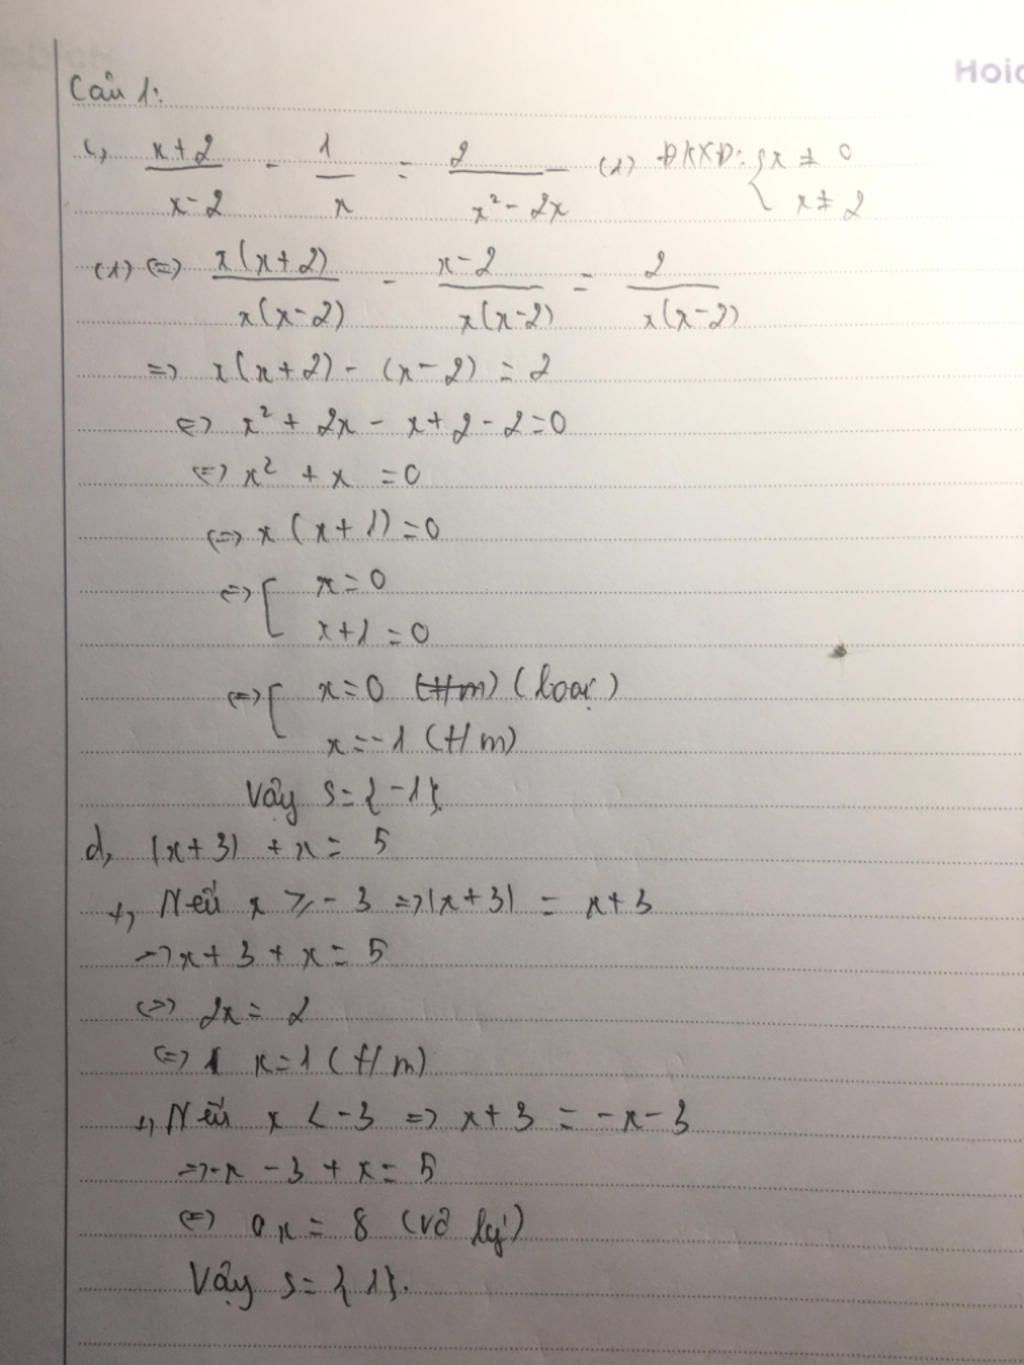 Hoid
Câu 1:
c, x+2/x-2 - 1/x = 2/x²-2x (1) ĐKXĐ: { x ≠ 0
x ≠ 2
(1) <=> x(x+2)/x(x-2) - x-2/x(x-2) = 2/x(x-2)
=> x(x+2) - (x-2) = 2
<=> x² + 2x - x + 2 - 2 = 0
<=> x² + x = 0
<=> x (x+1) = 0
<=> [ x = 0
x+1 = 0
<=> [ x = 0 (t/m) (loại)
x = -1 (t/m)
Vậy S = {-1}.
d, |x+3| + x = 5
+, Nếu x ≥ -3 => |x+3| = x+3
-> x + 3 + x = 5
<=> 2x = 2
<=> x = 1 (t/m)
+, Nếu x < -3 => x+3 = -x-3
=> -x - 3 + x = 5
<=> 0x = 8 (vô lý)
Vậy S = {1}.